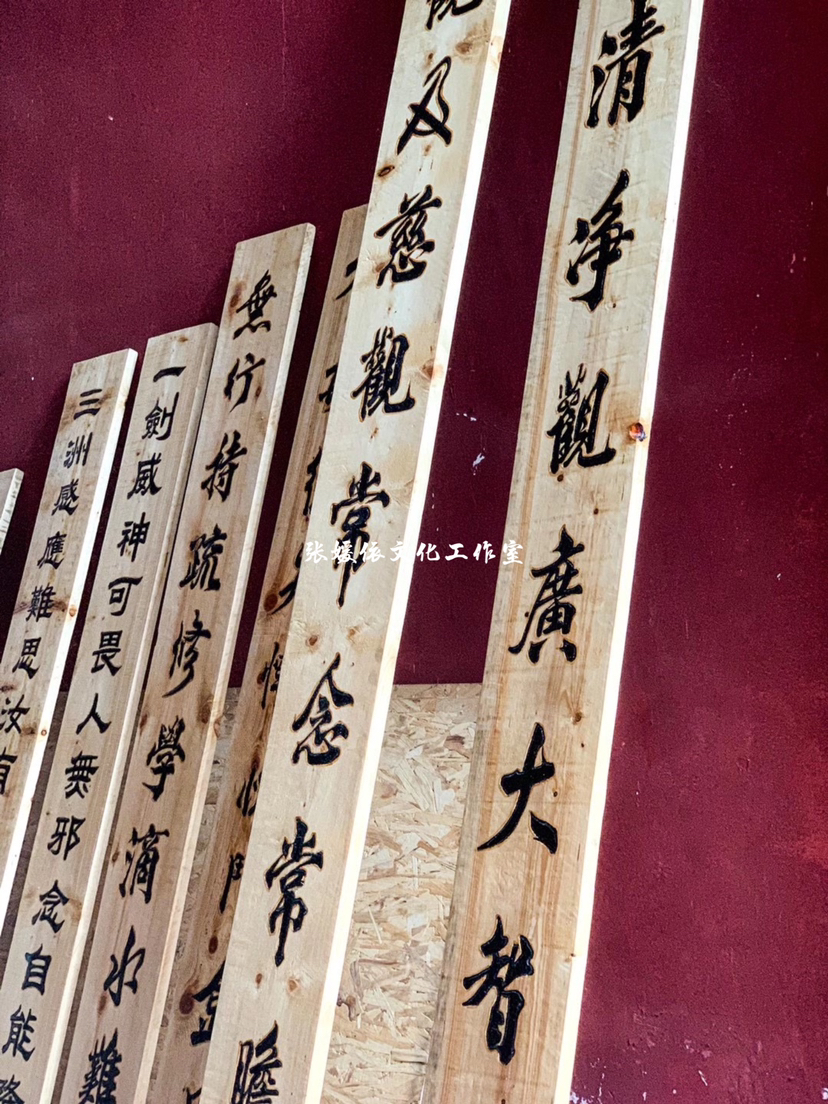 清淨觀廣大智
及慈觀常念常瞻
無行持疏修學滴水難
一劍威神可畏人無邪念自能
三洲感應難思汝有
张媛依文化工作室